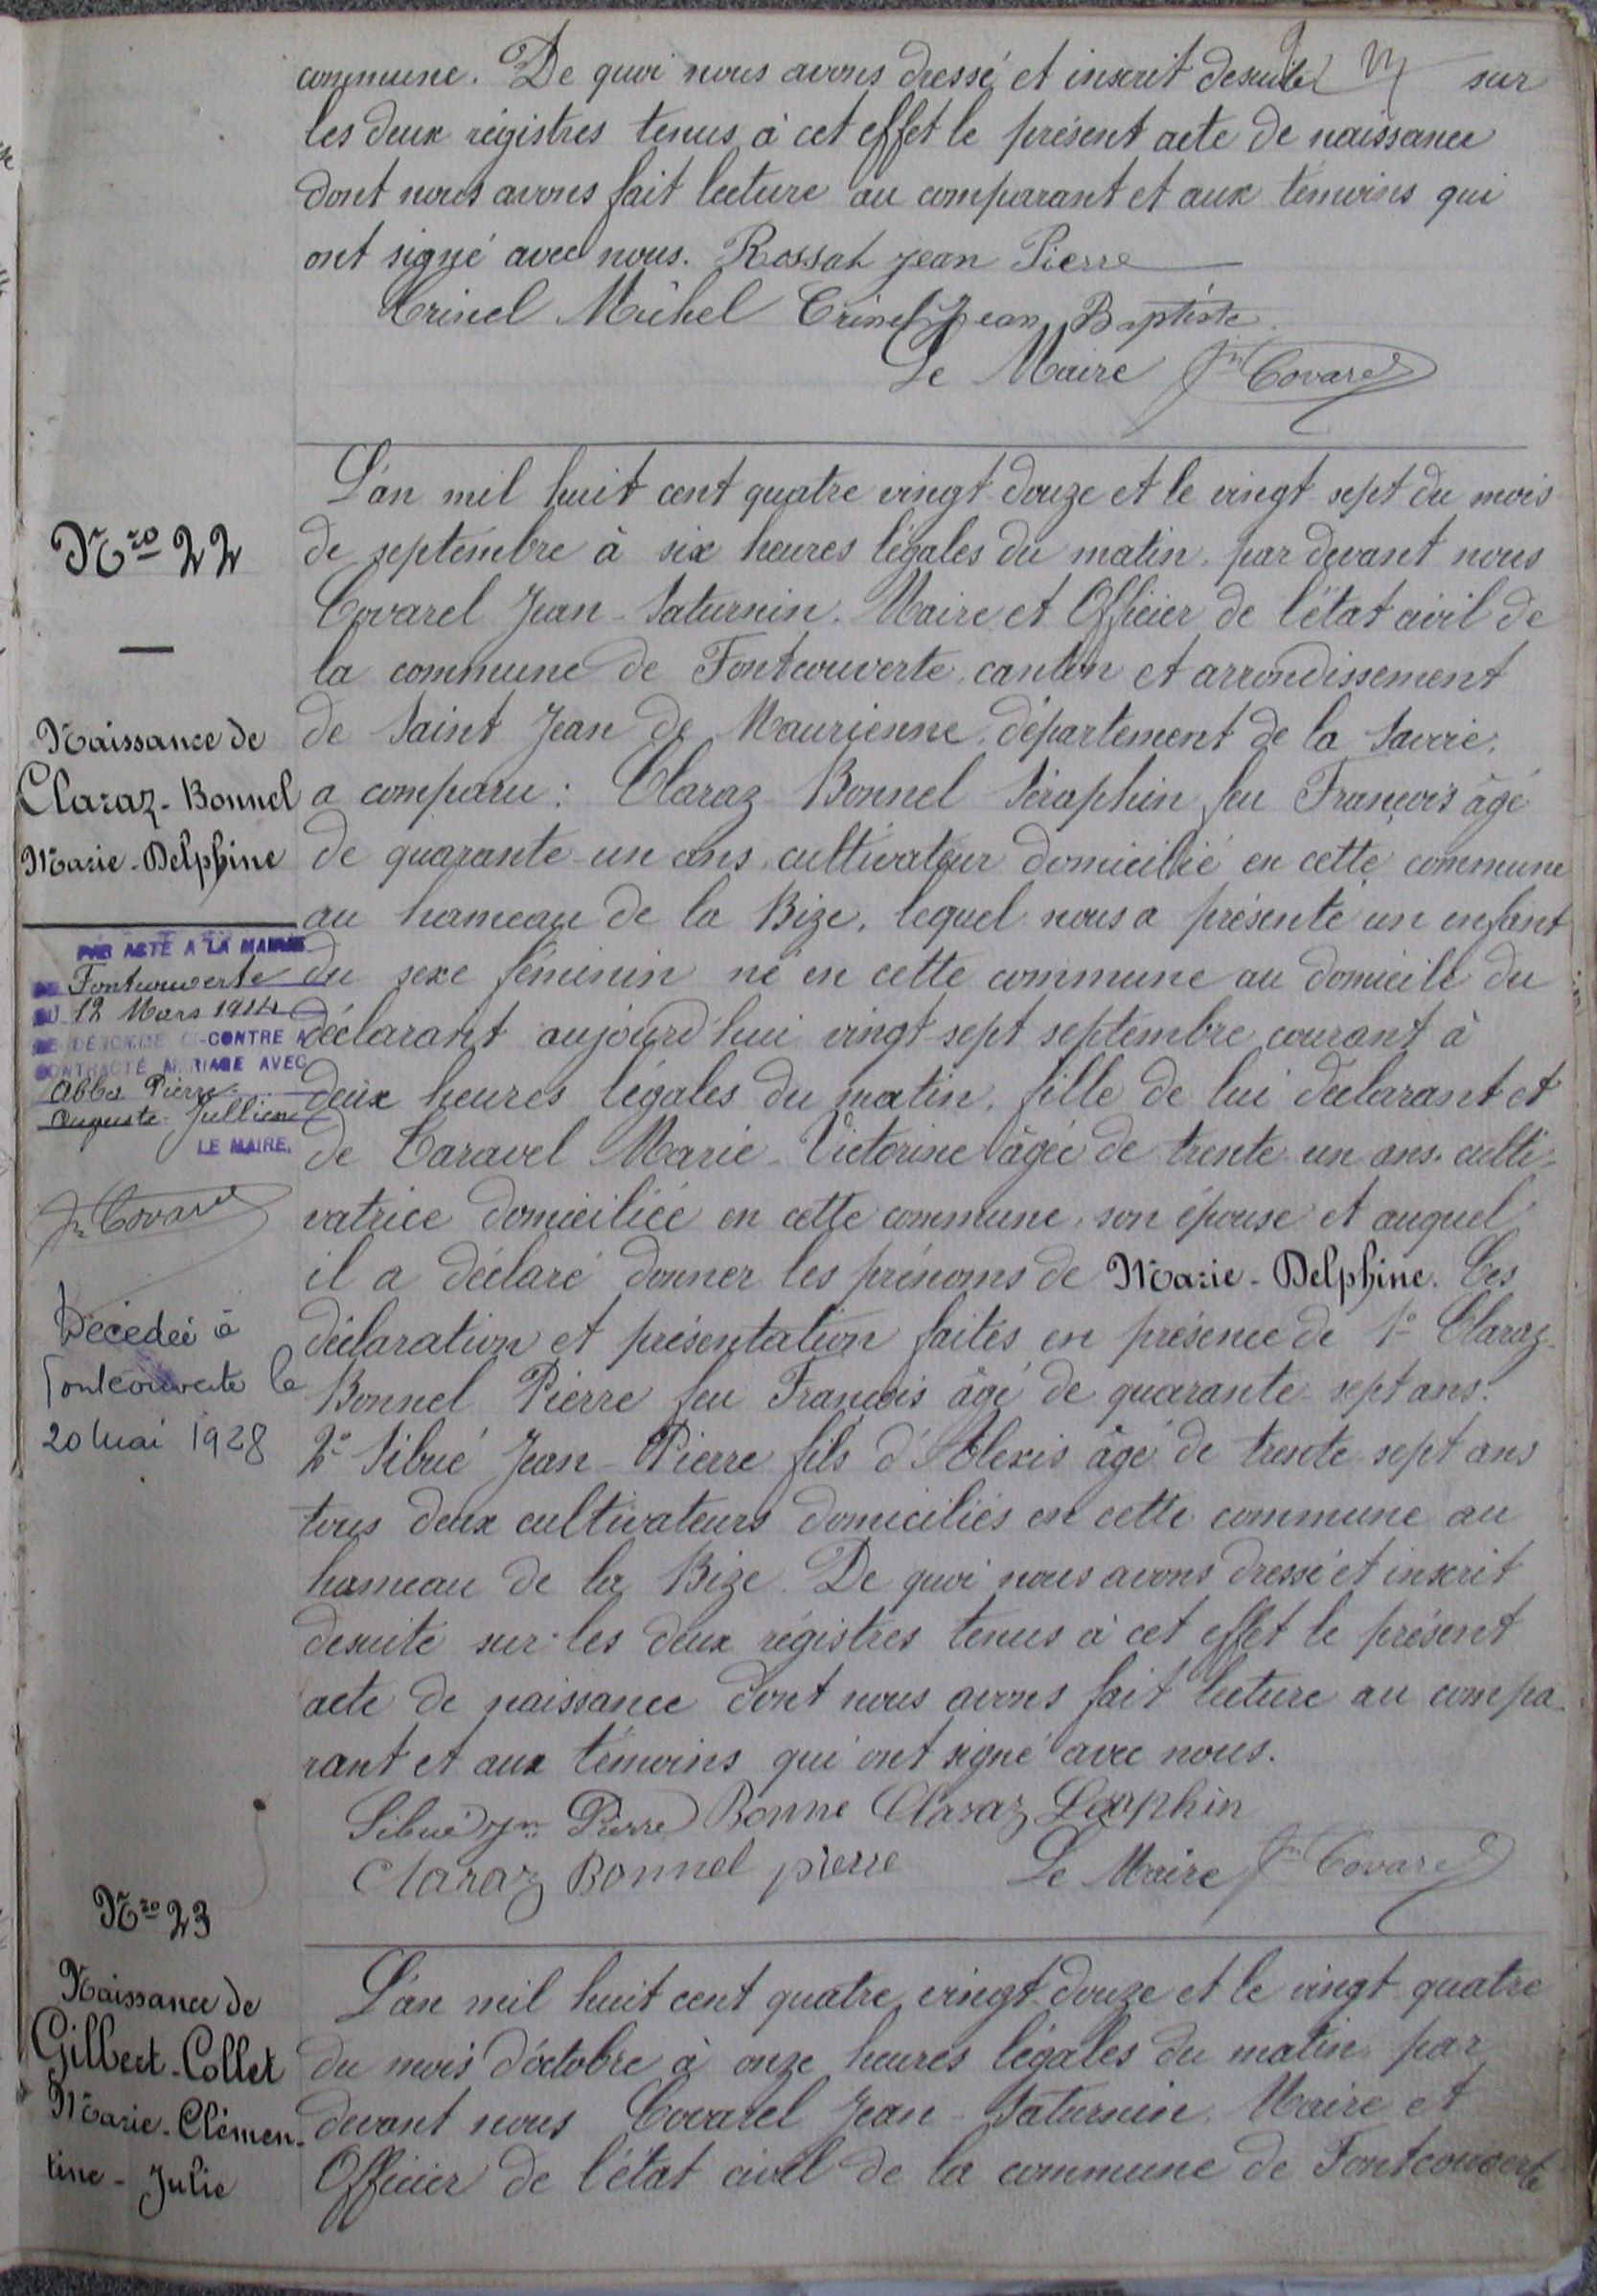 commune. De quoi nous avons dressé et inscrit desuite sur
les deux régistres tenus à cet effet le présent acte de naissance
dont nous avons fait lecture au comparant et aux témoins qui
ont signé avec nous. Rossat Jean Pierre
Michel Jean Baptiste
Le Maire Jn Covarel
Nro 22
Naissance de
Claraz-Bonnel
Marie-Delphine
PAR ACTE A LA MAIRIE
DE Fontcouverte
DU 12 Mars 1914
CI-CONTRE A
CONTRACTÉ MARIAGE AVEC
Pierre
Auguste Jullien
LE MAIRE.
Jn Covarel
Décédée à
Fontcouverte le
20 Mai 1928
L'an mil huit cent quatre vingt-douze et le vingt-sept du mois
de septembre à six heures légales du matin, par devant nous
Covarel Jean-Saturnin, Maire et Officier de l'état civil de
la commune de Fontcouverte, canton et arrondissement
de Saint Jean de Maurienne, département de la Savoie,
a comparu : Claraz-Bonnel Séraphin feu François âgé
de quarante-un ans, cultivateur domicilié en cette commune
au hameau de la Bize, lequel nous a présenté un enfant
du sexe féminin né en cette commune au domicile du
déclarant aujourd'hui vingt-sept septembre courant à
deux heures légales du matin, fille de lui déclarant et
de Taravel Marie-Victorine âgée de trente-un ans, culti-
vatrice domiciliée en cette commune, son épouse et auquel
il a déclaré donner les prénoms de Marie-Delphine. Ces
déclaration et présentation faites en présence de 1° Claraz-
Bonnel Pierre feu François âgé de quarante-sept ans.
2° Sibué Jean-Pierre fils d'Alexis âgé de trente-sept ans
tous deux cultivateurs domiciliés en cette commune au
hameau de la Bize. De quoi nous avons dressé et inscrit
desuite sur les deux régistres tenus à cet effet le présent
acte de naissance dont nous avons fait lecture au compa-
rant et aux témoins qui ont signé avec nous.
Sibué Jn Pierre Bonne Claraz
Claraz Bonnel pierre Le Maire Jn Covarel
Nro 23
Naissance de
Gilbert-Collet
Marie-Clémen-
tine-Julie
L'an mil huit cent quatre vingt-douze et le vingt-quatre
du mois d'octobre à onze heures légales du matin, par
devant nous Covarel Jean-Saturnin, Maire et
Officier de l'état civil de la commune de Fontcouverte